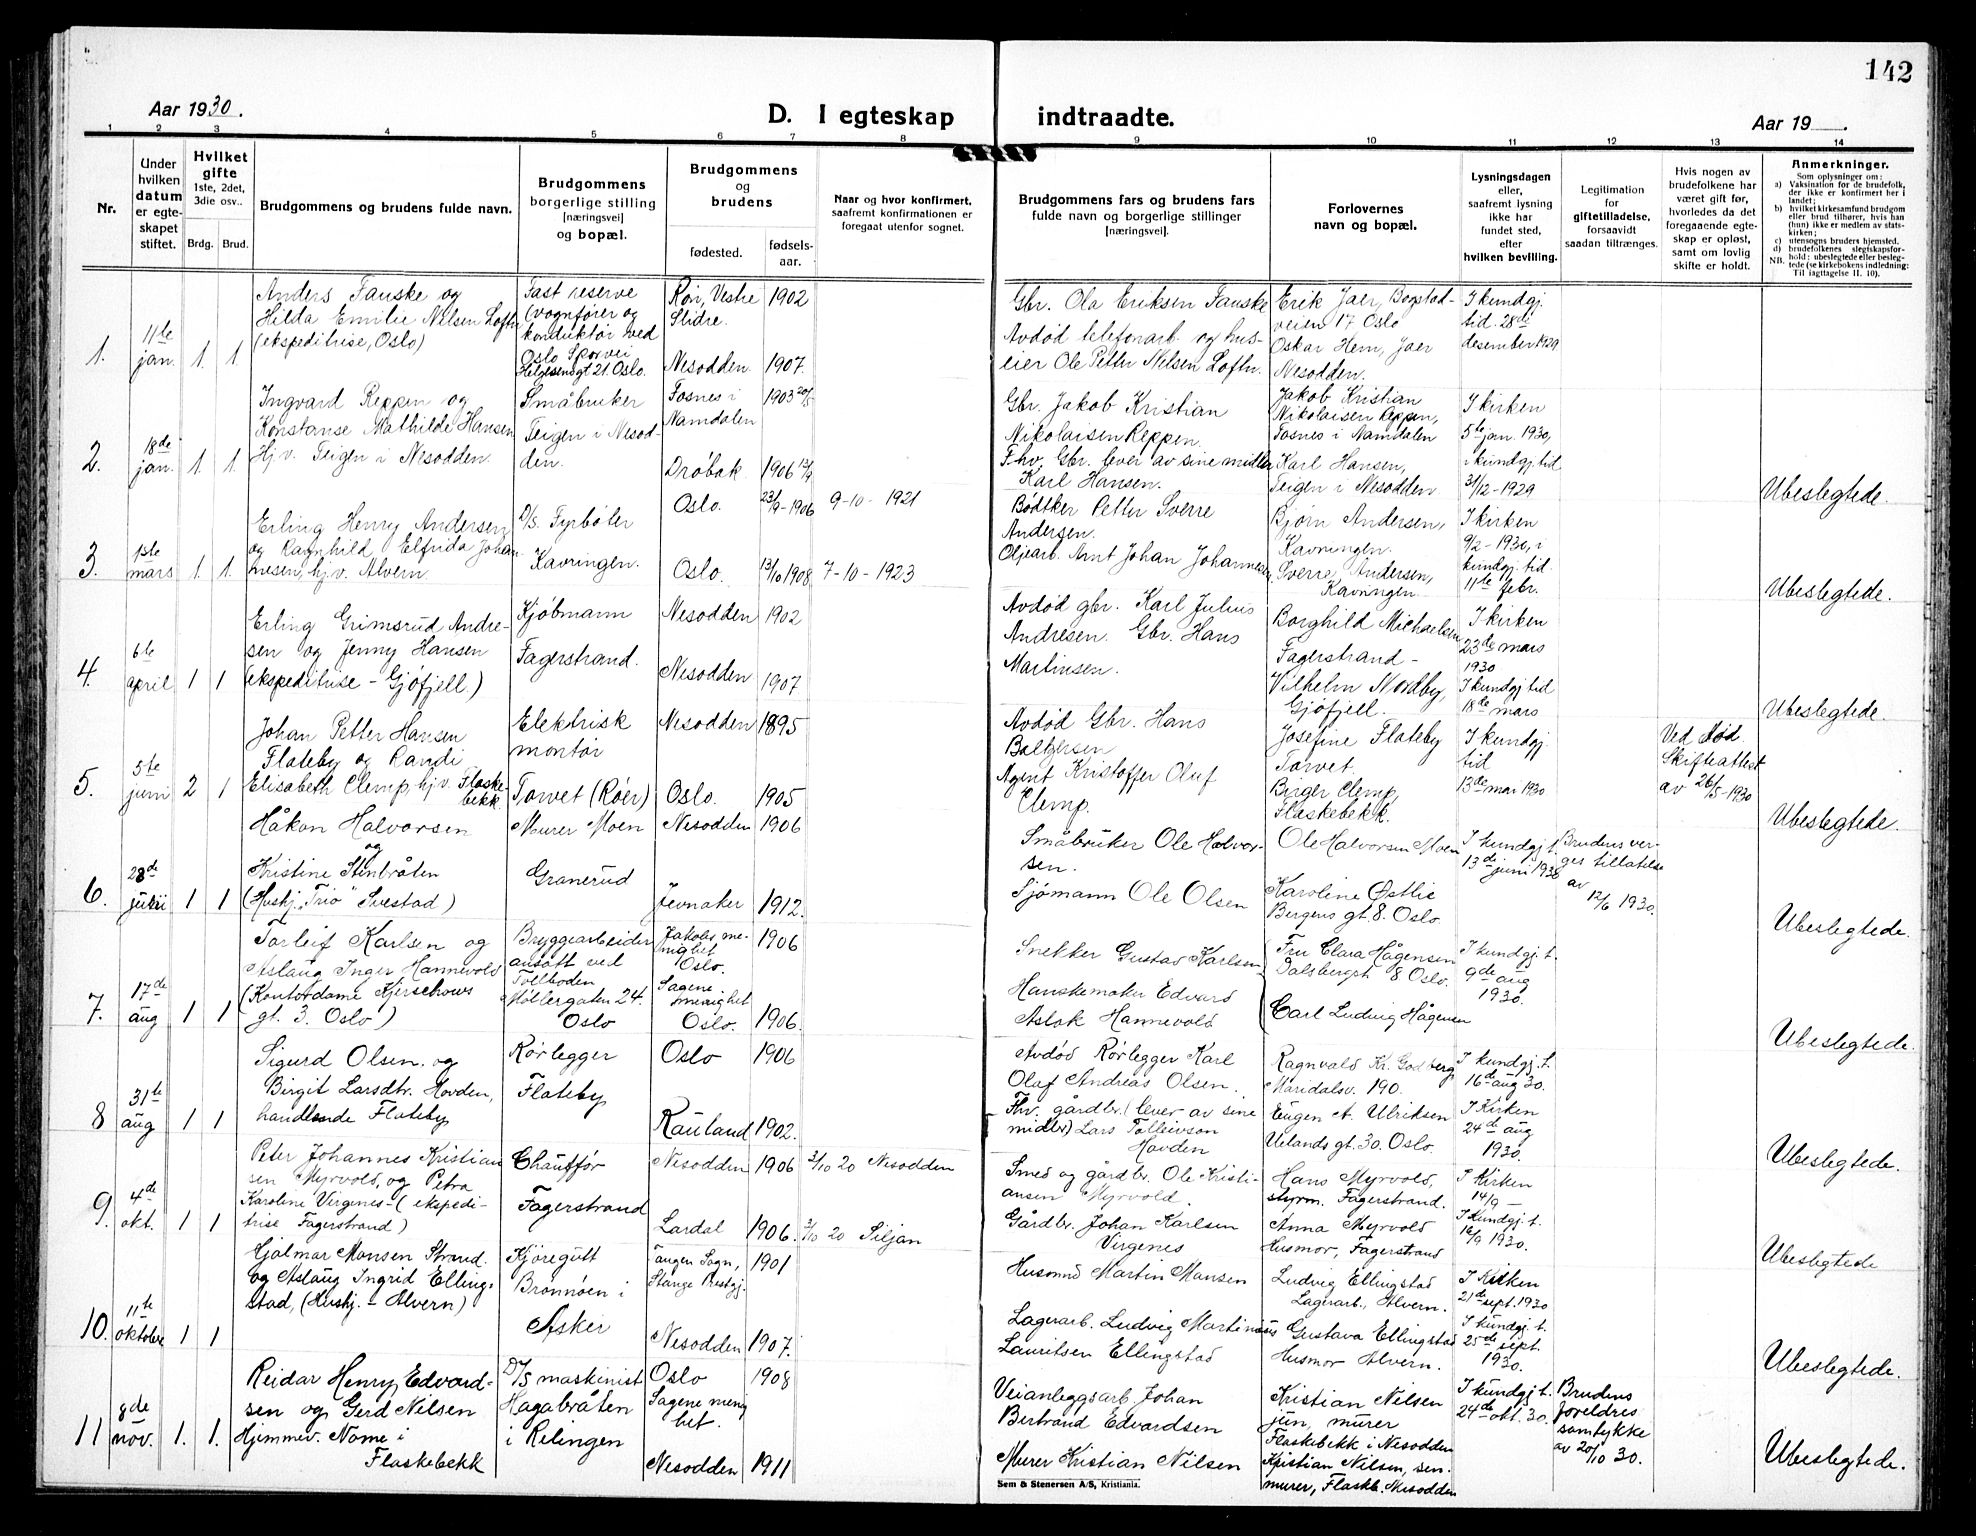 142
Aar 1930.
D. I egteskap indtraadte.
Aar 19 .
1 2 3 4 5 6 7 8 9 10 11 12 13 14
Nr.
Under hvilken datum er egteskapet stiftet.
Hvilket gifte
1ste, 2det, 3die osv..
Brdg. Brud.
Brudgommens og brudens fulde navn.
Brudgommens borgerlige stilling [næringsvei] og bopæl.
Brudgommens og brudens
fødested. fødselsaar.
Naar og hvor konfirmert, saafremt konfirmationen er foregaat utenfor sognet.
Brudgommens fars og brudens fars fulde navn og borgerlige stillinger [næringsvei].
Forlovernes navn og bopæl.
Lysningsdagen eller, saafremt lysning ikke har fundet sted, efter hvilken bevilling.
Legitimation for giftetilladelse, forsaavidt saadan tiltrænges.
Hvis nogen av brudefolkene har været gift før, hvorledes da det foregaaende egteskap er opløst, samt om lovlig skifte er holdt.
Anmerkninger.
Som oplysninger om:
a) Vaksination før de brudefolk, der ikke er konfirmert her i landet;
b) hvilket kirkesamfund brudgom eller brud tilhører, hvis han (hun) ikke er medlem av statskirken;
c) utensogns bruders hjemsted.
d) brudefolkenes slegtskapsforhold: ubeslegtede eller beslegtede (se kirkebokens indledning: Til iagttagelse II. 10).
NB.
1. 11te jan. 1 1
Anders Fauske og
Hilda Emilie Nilsen Loftn
(ekspeditrise, Oslo)
Fast reserve
(vognfører og
konduktør ved
Oslo Sporvei
Helgesensgt 21. Oslo.
Røn, Vestre Slidre. 1902
Nesodden 1907.
Gbr. Ola Eriksen Fauske
Avdød telefonarb. og hus-
eier Ole Petter Nilsen Loftn.
Erik Jaer, Bogstad-
veien 17 Oslo
Oskar Hem, Jaer
Nesodden.
I kundgj.
tid. 28de
desember 1929
2. 18de jan. 1. 1.
Ingvard Reppen og
Konstanse Mathilde Hansen
Hj.v. Teigen i Nesodden.
Småbruker
Teigen i Nesod-
den.
Fosnes i Namdalen 1903 20/5
Drøbak 1906 13/4
Gbr. Jakob Kristian
Nikolaisen Reppen.
Fhv. Gbr. lever av sine midler
Karl Hansen.
Jakob Kristian
Nikolaisen Reppen,
Fosnes i Namdalen
Karl Hansen,
Teigen i Nesodden
I kirken
5te jan. 1930,
i kundgj. tid
31/12-1929
Ubeslegtede.
3. 1ste mars 1. 1.
Erling Henry Andersen
og Ragnhild Elfrida Johan
nesen, hj.v. Alvern.
D/s. Fyrbøter
Kavringen.
Oslo. 23/9-1906 9-10-1921
Oslo. 13/10 1908 7-10-1923
Bødtker Petter Sverre
Andersen.
Oljearb. Arnt Johan Johannesen,
Bjørn Andersen,
Kavringen.
Sverre Andersen,
Kavringen
I kirken
9/2-1930, i
kundgj. tid
11te febr.
Ubeslegtede.
4. 6te april 1 1
Erling Grimsrud Andre-
sen og Jenny Hansen
(ekspeditrise - Gjøfjell.)
Kjøbmann
Fagerstrand.
Nesodden 1902
Nesodden 1907
Avdød gbr. Karl Julius
Andresen. Gbr. Hans
Martinsen.
Borghild Michaelsen
Fagerstrand -
Vilhelm Nordby,
Gjøfjell.
I kirken
23de mars
1930
I kundgj. tid
18de mars
Ubeslegtede.
5. 5te juni 2 1
Johan Petter Hansen
Flateby og Randi
Elisabeth Clemp, hj.v. Flaske-
bekk.
Elektrisk
montør
Torvet (Røer)
Nesodden 1895
Oslo. 1905
Avdød Gbr. Hans
Baltzersen
Agent Kristoffer Oluf
Clemp.
Josefine Flateby
Torvet.
Birger Clemp,
Flaskebekk.
I kundgj.
tid
13de mai 1930
Ved død.
Skifteattest
av 26/5-1930
Ubeslegtede.
6. 28de juni 1 1
Håkon Halvorsen
og
Kristine Stenbråten
(Hushj. "Trio" Svestad)
Murer Moen
Granerud
Nesodden 1906
Jevnaker 1912.
Småbruker Ole Halvor-
sen.
Sjømann Ole Olsen
Ole Halvorsen Moen
Karoline Østlie
Bergens gt. 8. Oslo
I kundgj. t.
13de juni 1930
Brudens ver-
ges tillatelse
av
12/6 1930.
Ubeslegtede.
7. 17de aug 1 1
Torleif Karlsen og
Aslaug Inger Hannevold
(Kontordame Kjerschows
gt. 3. Oslo)
Bryggearbeider
ansatt ved
Tollboden
Møllergaten 24.
Oslo
Jakobs me-
nighet
Oslo. 1906
Sagene
menighet
Oslo. 1906.
Snekker Gustav Karlsen
Hanskemaker Edvard
Aslak Hannevold
Fru Clara Hågensen
Dalsbergst. 8 Oslo.
Carl Ludvig Hågensen
I kundgj. t.
9de aug
1930.
Ubeslegtede.
8 31te aug 1 1
Sigurd Olsen. og
Birgit Larsdtr. Hovden,
handlende Flateby
Rørlegger
Flateby
Oslo 1906
Rauland 1902.
Avdød Rørlegger Karl
Olaf Andreas Olsen.
Fhv. gårdbr. (lever av sine
midler) Lars Tolleivson
Hovden
Ragnvald Kr. Godberg
Maridalsv. 190.
Eugen A. Ulriksen
Uelands gt. 30. Oslo.
I kundgj. t.
16de aug 30.
I Kirken
24de aug
1930.
Ubeslegtede.
9. 4de okt. 1 1
Peter Johannes Kristian
sen Myrvold, og Petra
Karoline Virgenes - (ekspedi-
trise Fagerstrand)
Chauffør
Fagerstrand
Nesodden 1906 3/10 20 Nesodden
Lardal 1906. 3/10 20 Siljan
Smed og gårdbr. Ole Kristi-
ansen Myrvold.
Gårdbr. Johan Karlsen
Virgenes
Hans Myrvold,
styrm. Fagerstrand.
Anna Myrvold
Husmor, Fagerstrand
I Kirken
14/9 -
I Kundgj. t.
16/9 1930.
Ubeslegtede
10. 11te oktober 1 1
Hjalmar Monsen Strand.
og Aslaug Ingrid Elling-
stad, (Hushj. - Alvern)
Kjøregutt
Brønnøen i
Asker
Tangen Sogn,
Stange Prestgj. 1901
Nesodden 1907.
Husmnd Martin Mansen
Lagerarb. Ludvig Martinius
Lauritsen Ellingstad
Ludvig Ellingstad
Lagerarb., Alvern.
Gustava Ellingstad
Husmor Alvern.
I Kirken
21de sept. 1930
I kundgj. t.
25de sept.
1930.
Ubeslegtede.
11 8de nov. 1. 1.
Reidar Henry Edvard-
sen og Gerd Nilsen
Hjemmev. Nome i
Flaskebekk
D/s maskinist
Hagabråten
i Relingen
Oslo 1908
Sagene menig
het.
Nesodden 1911
Veianleggsarb. Johan
Bertrand Edvardsen
Murer Kristian Nilsen
Kristian Nilsen
jun, murer
Flaskebekk i Nesodden
Kristian Nilsen, sen.
murer, Flaskb. Nesodden
I kundgj. t.
24de okt. 30.
Brudens
foreldres
samtykke
av 20/10 30.
Ubeslegtede.
Sem & Stenersen A/S, Kristiania.